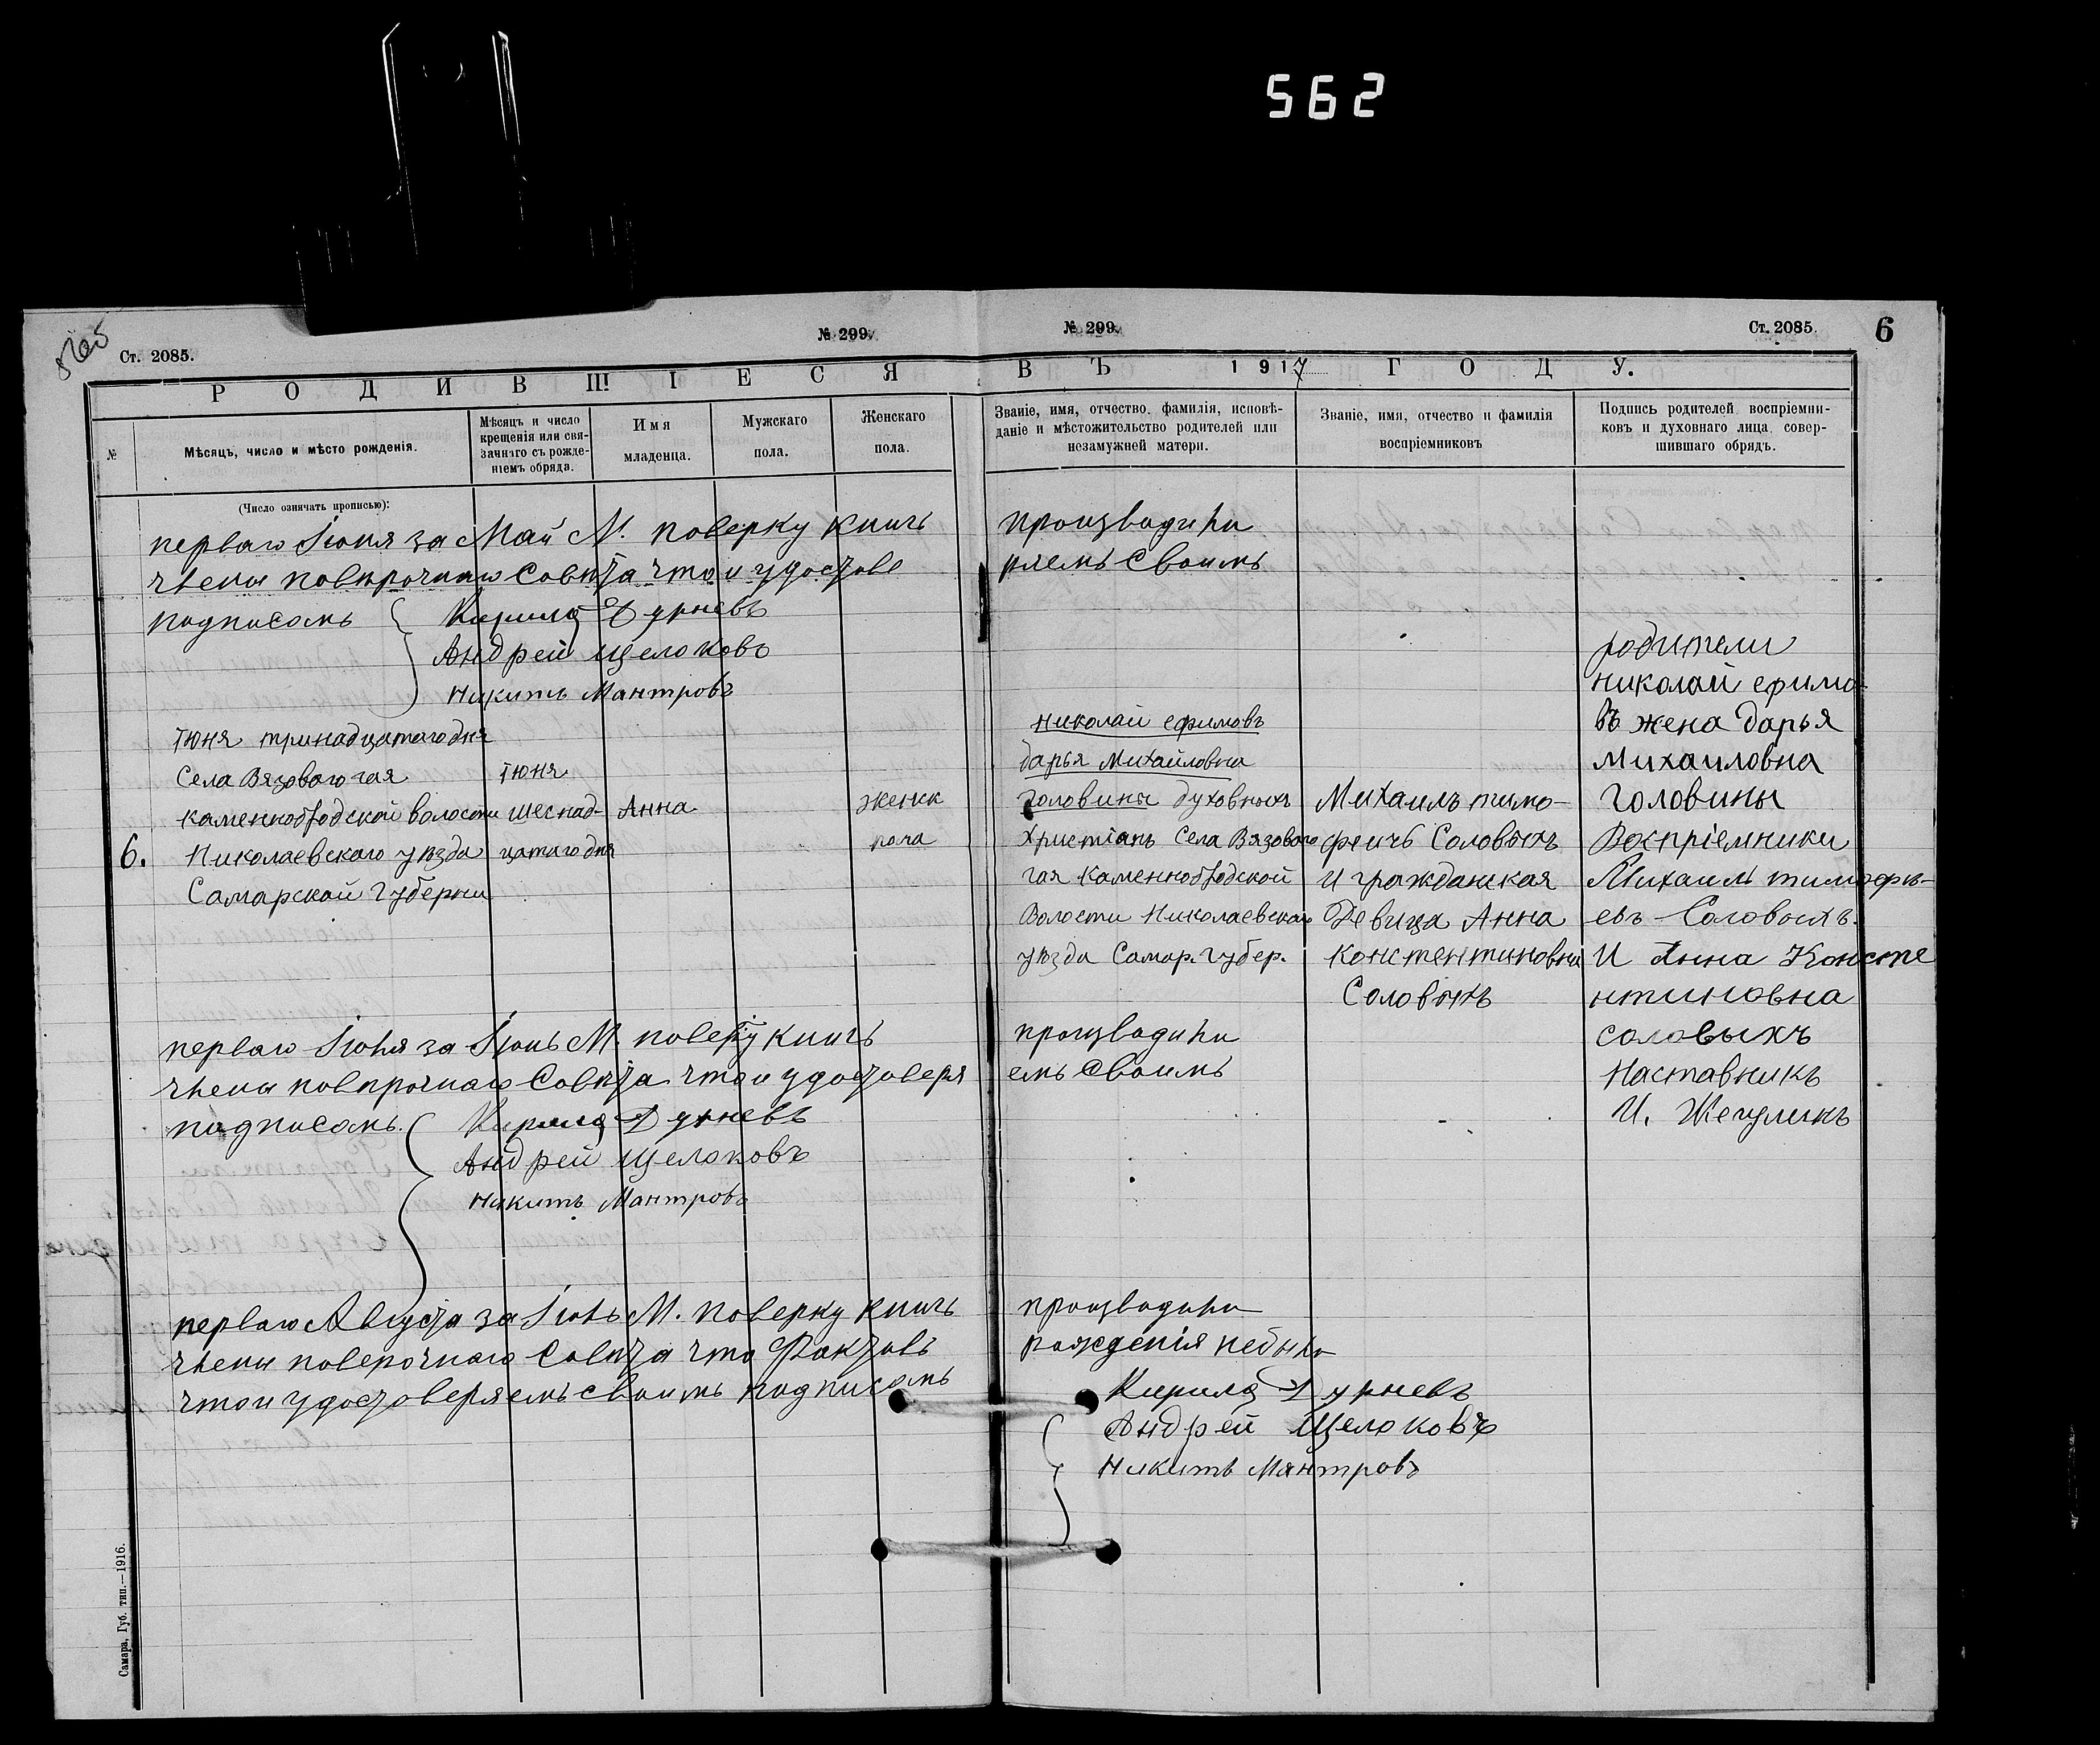 562
Ст. 2085.
№ 299.
№ 299.
Ст. 2085.
6
РОДИВШІЕСЯ
ВЪ 1917 ГОДУ.
№
Мѣсяцъ, число и мѣсто рожденія.
Мѣсяцъ и число
крещенія или свя-
заннаго съ рожде-
ніемъ обряда.
Имя
младенца.
Мужскаго
пола.
Женскаго
пола.
Званіе, имя, отчество, фамилія, исповѣ-
даніе и мѣстожительство родителей или
незамужней матери.
Званіе, имя, отчество и фамилія
воспріемниковъ
Подпись родителей воспріемни-
ковъ и духовнаго лица, совер-
шившаго обрядъ.
(Число означать прописью):
перваго Іюня за Май М. поверку книгъ производили
члены поверочнаго Совѣта что и удостове ряемъ Своимъ
подписомъ Кирила Дурневъ
Андрей Щелоковъ
Никитъ Мантровъ
6.
Іюня тринадцатаго дня
Села Вязоваго гая
Каменнобродской волости
Николаевскаго уѣзда
Самарской Губерни
Іюня
шеснад-
цатаго дня
Анна
женск
пола
Николай ефимовъ
дарья Михайловна
Головины духовныхъ
Христіанъ Села Вязоваго
гая Каменнобродской
Волости Николаевскаго
уѣзда Самар. Губер.
Михаилъ тимо-
феичъ Соловыхъ
и гражданская
Девица Анна
Констентиновна
Соловыхъ
родители
Николай ефимо-
въ жена дарья
Михаиловна
Головины
Воспріемники
Михаилъ тимофѣ-
евъ Соловыхъ.
И Анна Консте
нтиновна
соловыхъ
Наставникъ
И. Жегулинъ
перваго Іюля за Іюнь М. поверку книгъ производили
члены поверочнаго Совѣта что и удостоверя емъ Своимъ
подписомъ. Кирила Дурневъ
Андрей Щелоковъ
Никитъ Мантровъ
перваго Августа за Іюль М. поверку книгъ производили
члены поверочнаго Совѣта что Фактовъ рожденія небыло
что и удостоверяемъ своимъ подписомъ
Кирила Дурневъ
Андрей Щелоковъ
Никитъ Мантровъ
Самара, Губ. тип.—1916.